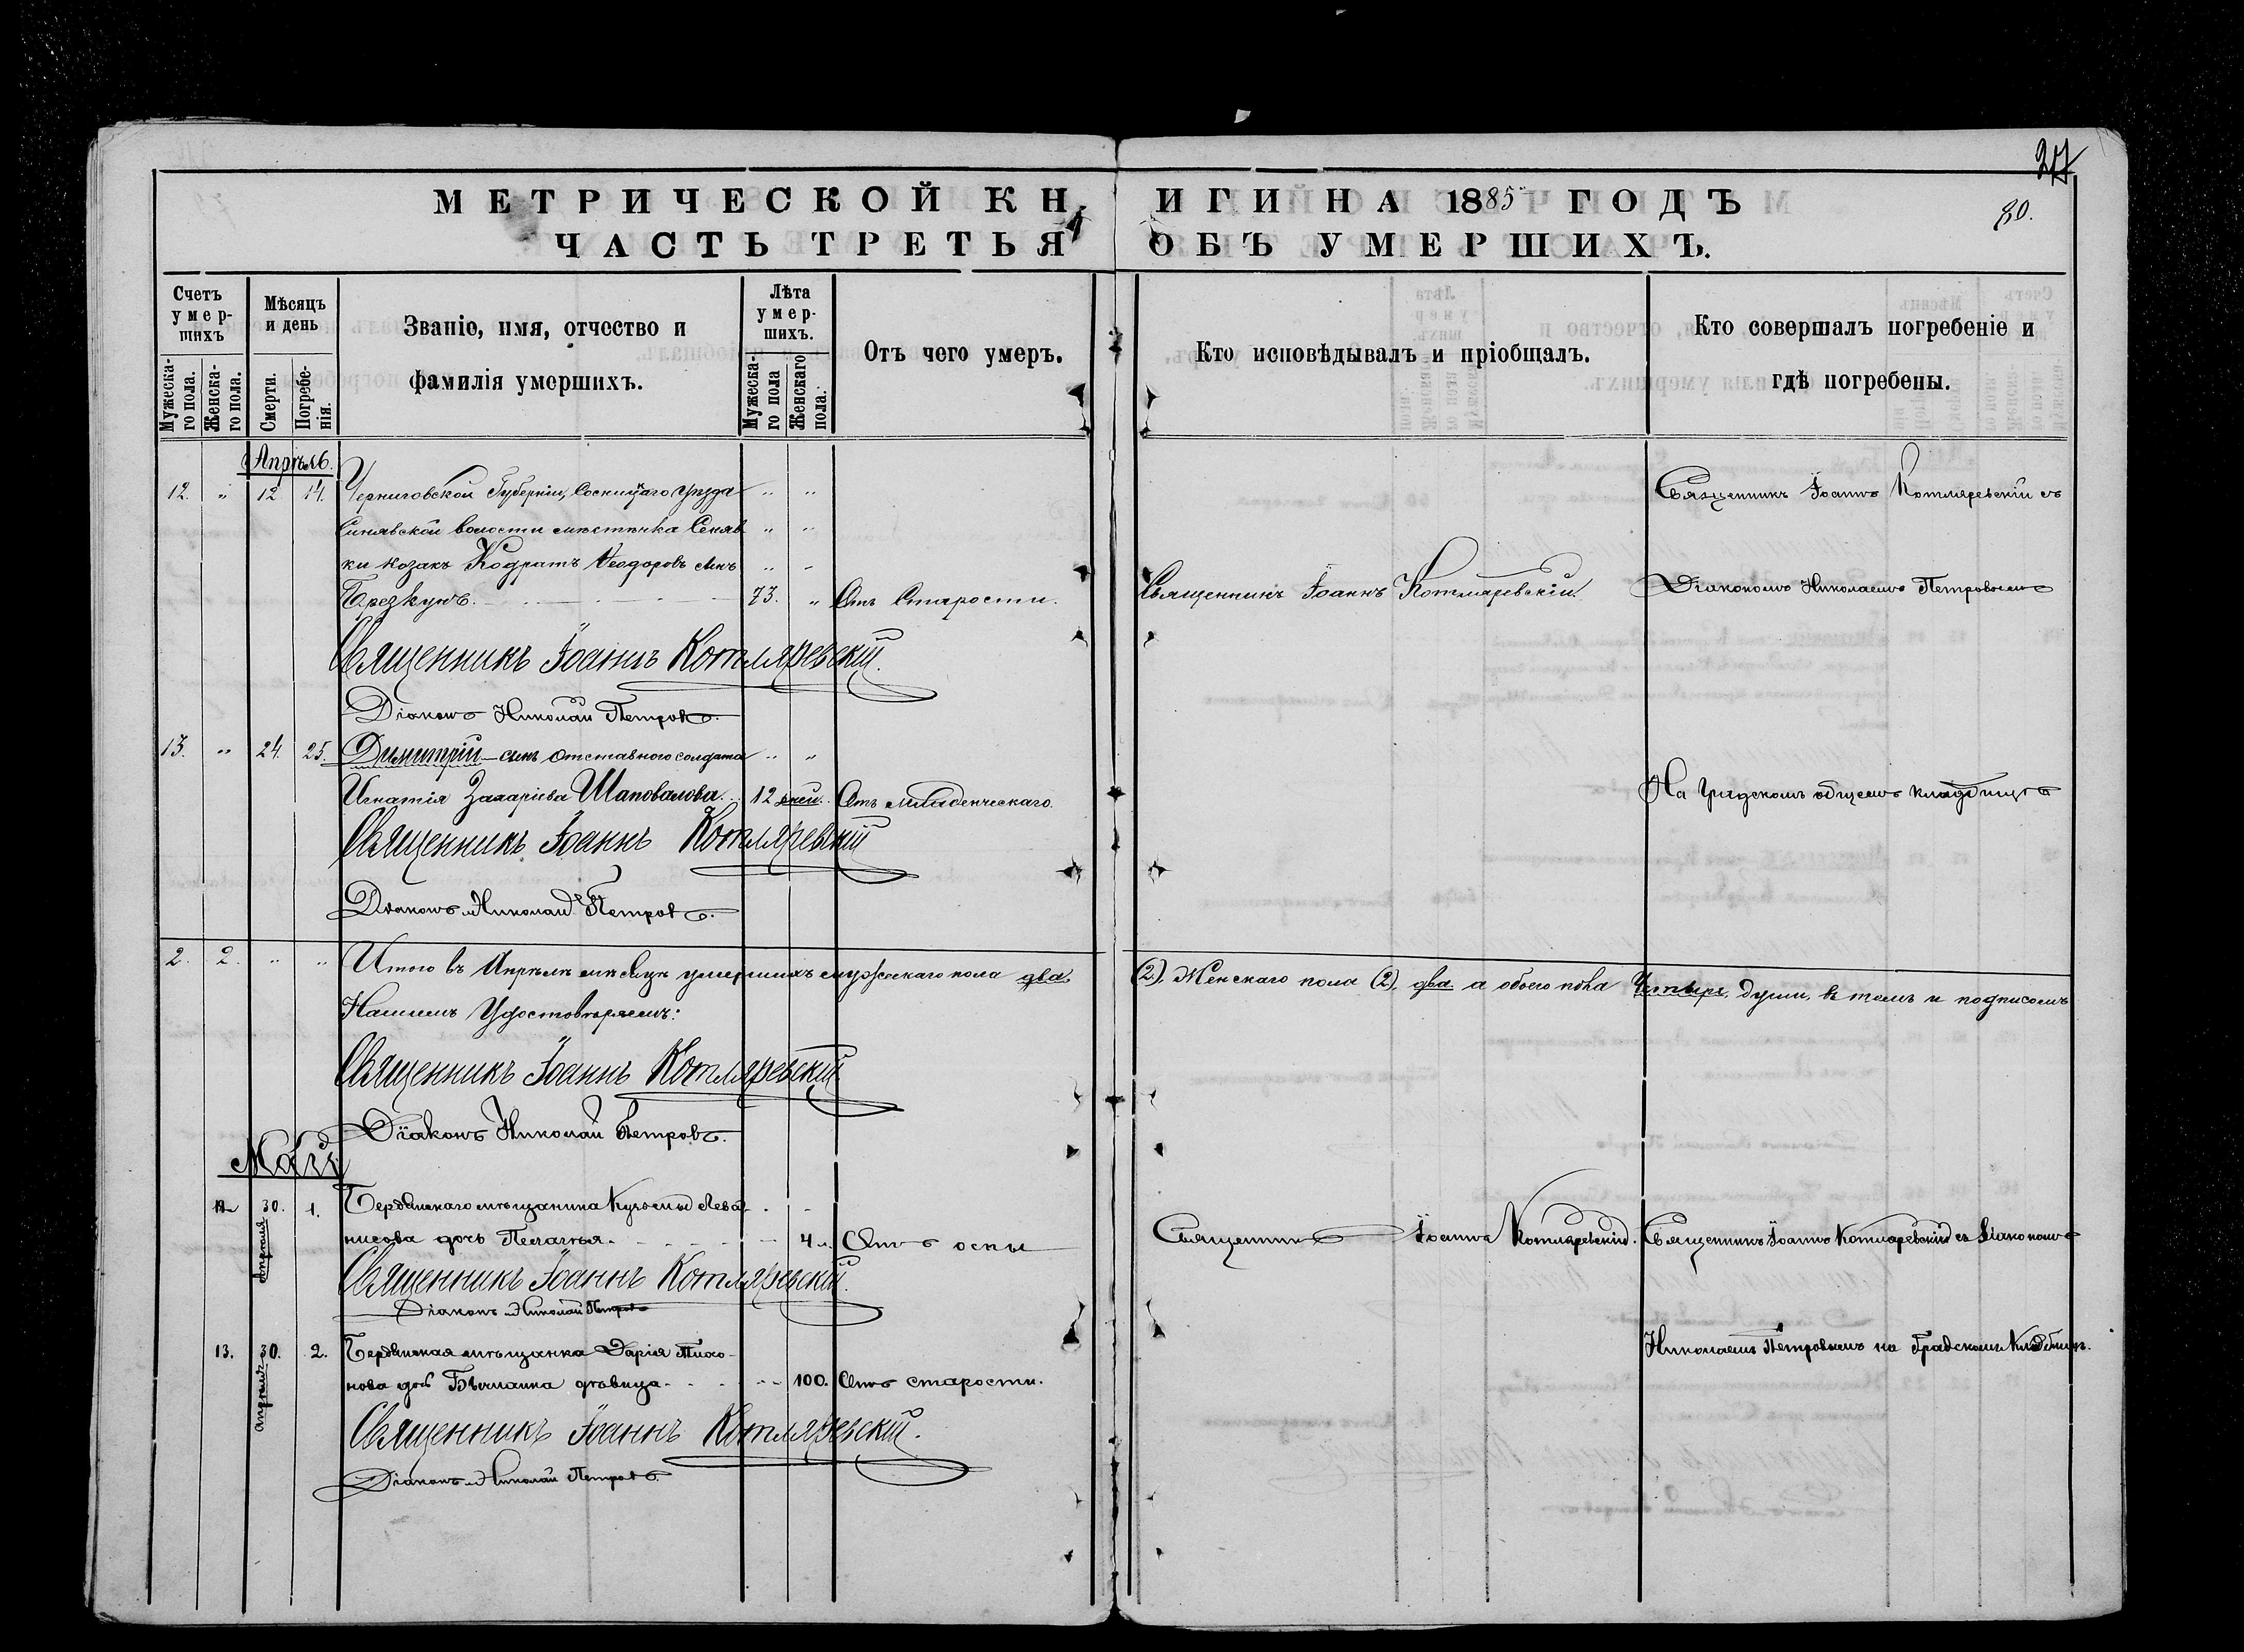 27
80.
МЕТРИЧЕСКОЙ КНИГИ НА 1885 ГОДЪ
ЧАСТЬ ТРЕТЬЯ ОБЪ УМЕРШИХЪ.
Счетъ умер-шихъ
Мужеска-го пола.
Женска-го пола.
Мѣсяцъ и день
Смерти.
Погребе-нія.
Званіе, имя, отчество и
фамилія умершихъ.
Лѣта умер-шихъ.
Мужеска-го пола
Женскаго пола.
Отъ чего умеръ.
Кто исповѣдывалъ и пріобщалъ.
Кто совершалъ погребеніе и
гдѣ погребены.
Апрѣль
12. " 12 14. Черниговской Губерніи, Сосницкаго уѣзда " " Священникъ Іоаннъ Котляревскій съ
Синявской волости мѣстечка Синяв " "
ки козакъ Кодратъ Ѳеодоровъ сынъ " "
73. " Отъ Старости. Священникъ Іоаннъ Котляревскій Діакономъ Николаемъ Петровымъ
Священникъ Іоаннъ Котляревскій.
Діаконъ Николай Петровъ.
13. " 24. 25. Димитрій - сынъ отставного солдата " "
Игнатія Захаріева Шаповалова. 12 дней. Отъ младенческаго. На Градскомъ общемъ кладбищѣ
Священникъ Іоаннъ Котляревскій
Діаконъ Николай Петровъ.
2. 2. " " Итого въ Апрѣлѣ мѣсяцѣ умершихъ мужескаго пола два (2). Женскаго пола (2). два а обоего пола Четыре души, въ томъ и подписомъ
Нашимъ Удостовѣряемъ:
Священникъ Іоаннъ Котляревскій
Діаконъ Николай Петровъ.
Май
12 30. апрѣля 1. Бердянскаго мѣщанина Кузьмы Лева
нисова дочь Пелагія. 4 л. Отъ оспы Священникъ Іоаннъ Котляревскій. Священникъ Іоаннъ Котляревскій съ Діакономъ
Священникъ Іоаннъ Котляревскій.
Діаконъ Николай Петровъ
13. 30. апрѣля 2. Бердянская мѣщанка Дарія Тихо- Николаемъ Петровымъ на Градскомъ Кладбищѣ.
нова дочь дѣвица 100. Отъ старости.
Священникъ Іоаннъ Котляревскій.
Діаконъ Николай Петровъ.